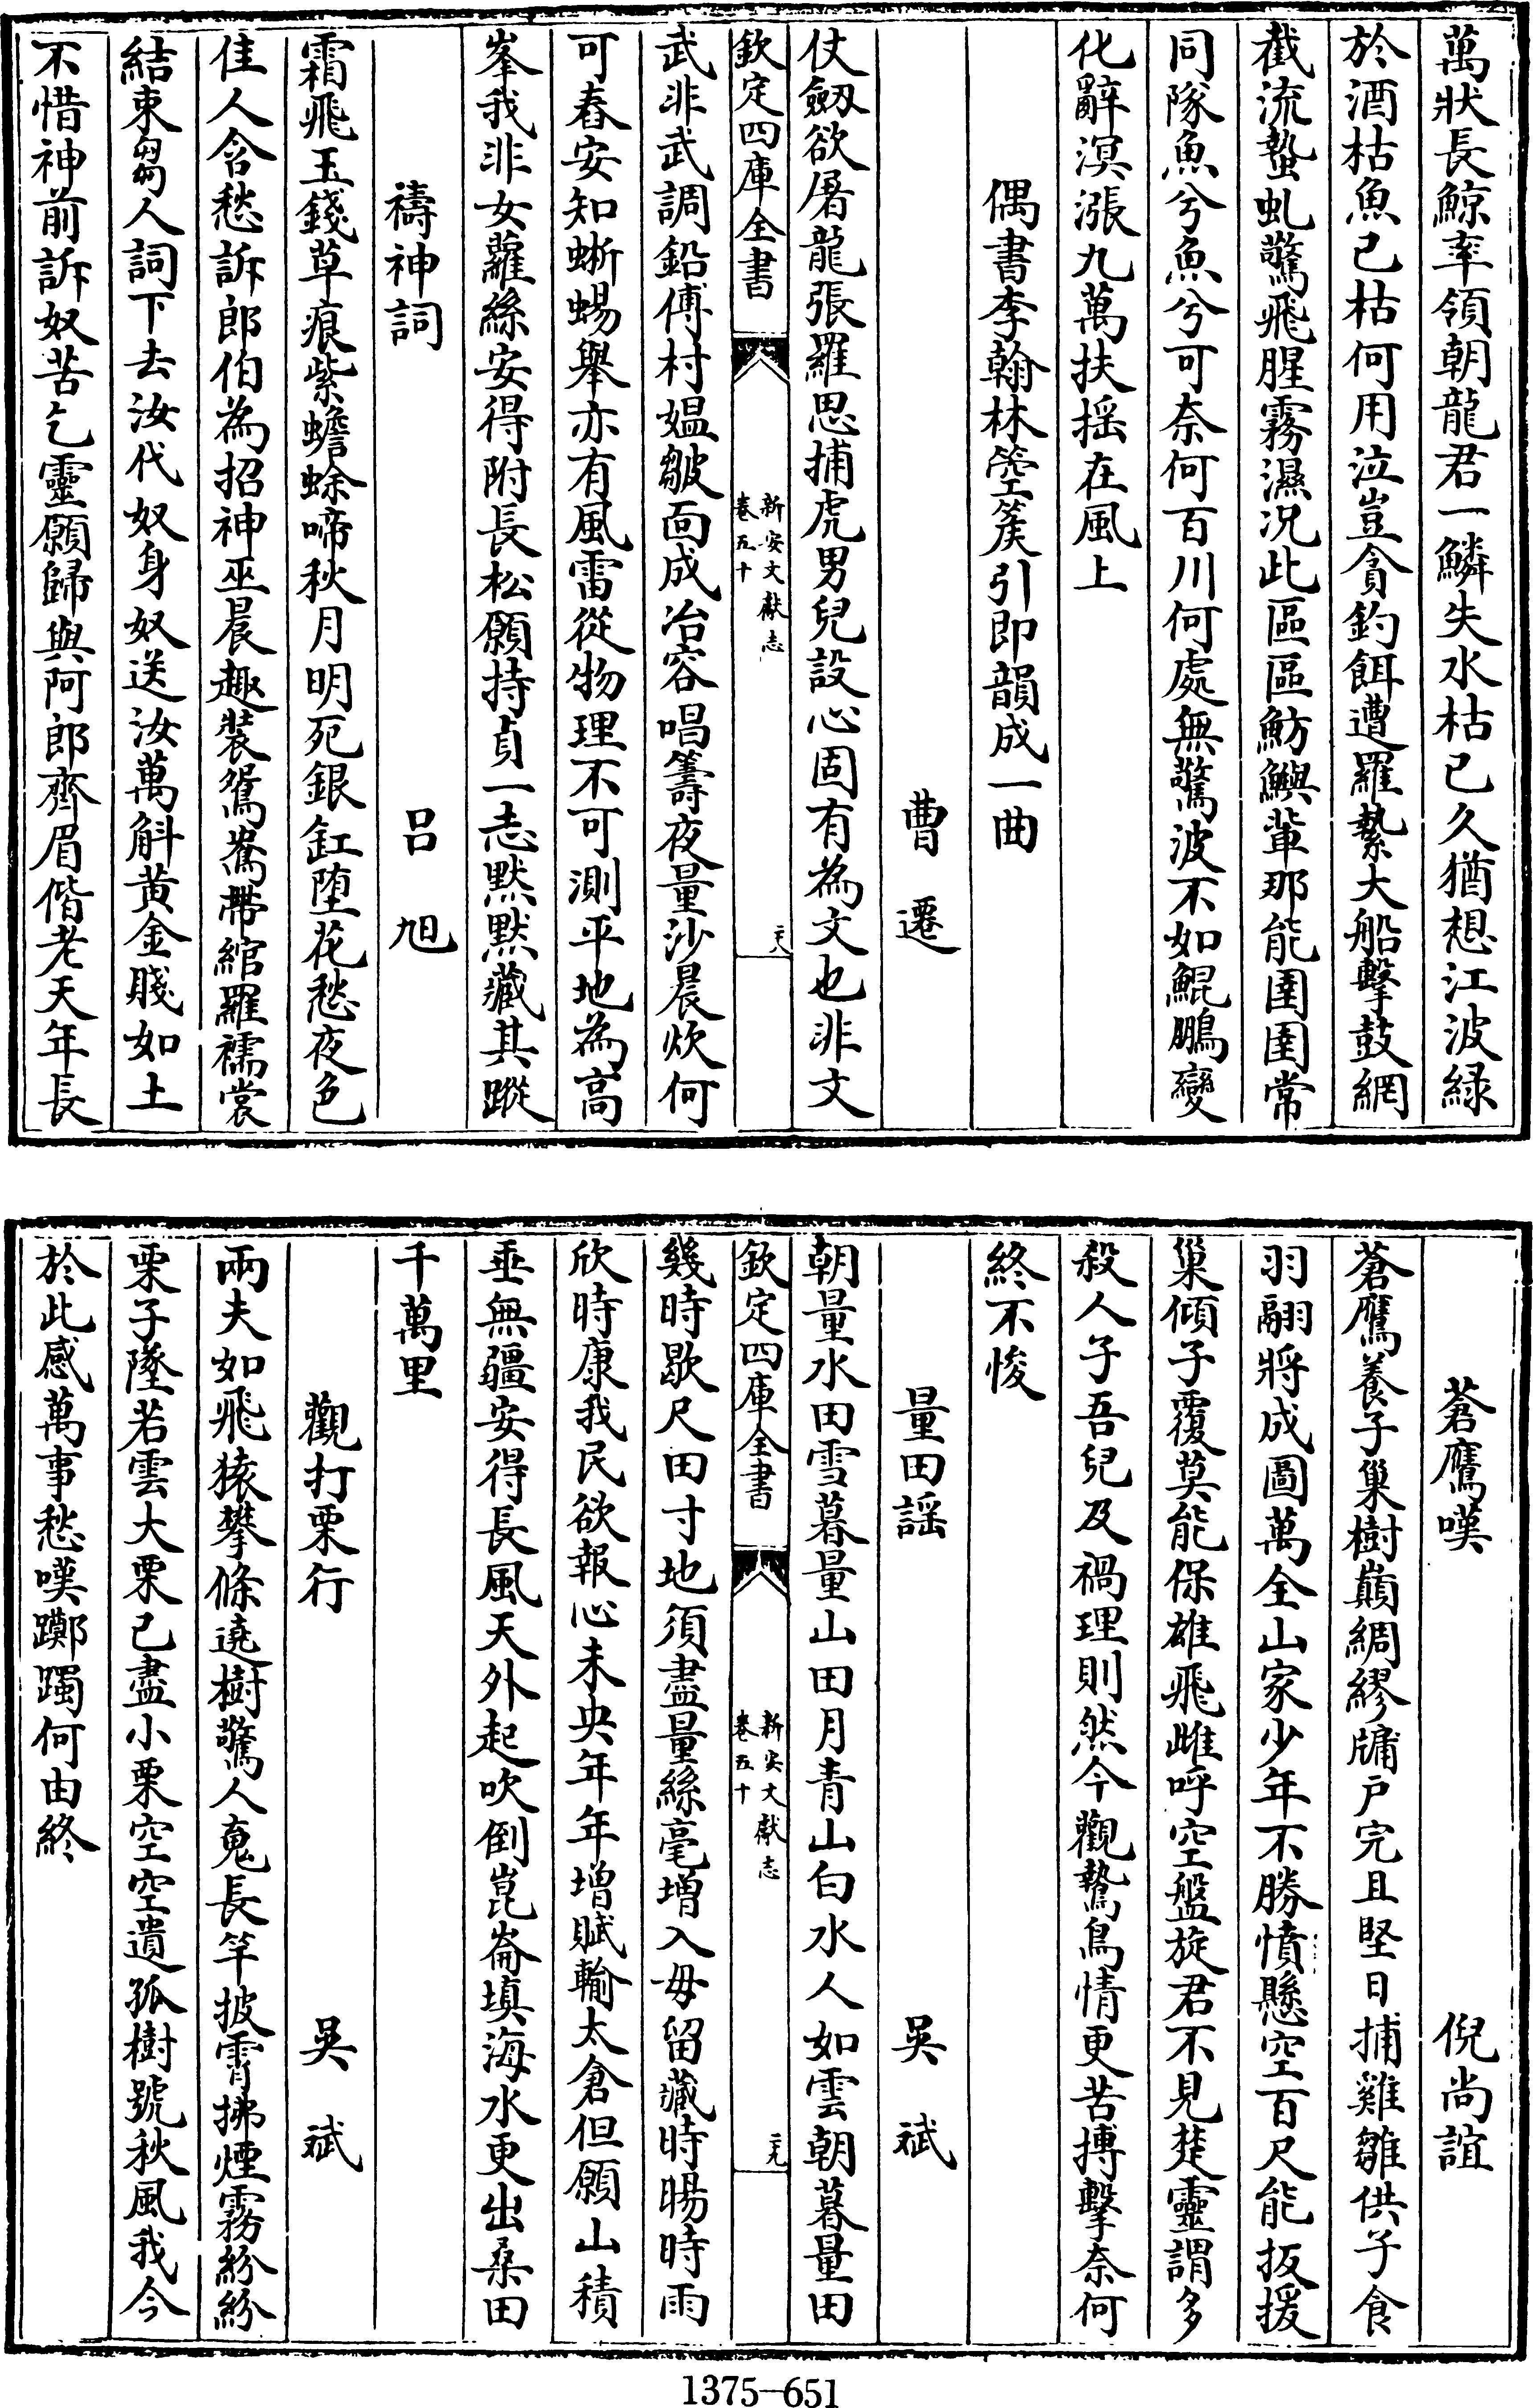 萬狀長鯨率領朝龍君一鱗失水枯已久猶想江波緑
於酒枯魚已枯何用泣豈貪釣餌遭羅縶大船擊鼓網
截流蟄虬驚飛腥霧濕况此區區魴鱮輩那能圉圉常
同隊魚兮魚兮可奈何百川何處無驚波不如鯤鵬變
化辭溟漲九萬扶摇在風上
偶書李翰林箜篌引即韻成一曲
曹遷
仗劔欲屠龍張羅思捕虎男兒設心固有為文也非文
欽定四庫全書
新安文獻志
卷五十
二八
武非武調鉛傅村媪皺面成冶容唱籌夜量沙晨炊何
可舂安知蜥蜴舉亦有風雷從物理不可測平地為高
峯我非女蘿絲安得附長松願持貞一志默默藏其蹤
禱神詞 吕旭
霜飛玉錢草痕紫蟾蜍啼秋月明死銀缸堕花愁夜色
佳人含愁訴郎伯為招神巫晨趣裝鴛鴦帶綰羅襦裳
結束芻人詞下去汝代奴身奴送汝萬斛黄金賤如土
不惜神前訴奴苦乞靈願歸與阿郎齊眉偕老天年長
蒼鷹嘆 倪尚誼
蒼鷹養子巢樹巔綢繆牖戸完且堅日捕雞雛供子食
羽翮將成圖萬全山家少年不勝憤懸空百尺能扳援
巢傾子覆莫能保雄飛雌呼空盤旋君不見楚靈謂多
殺人子吾兒及禍理則然今觀鷙鳥情更苦搏擊奈何
終不悛
量田謡 吳斌
朝量水田雪暮量山田月青山白水人如雲朝暮量田
欽定四庫全書
新安文獻志
卷五十
二九
幾時歇尺田寸地須盡量絲毫増入毋留藏時暘時雨
欣時康我民欲報心未央年年增賦輸太倉但願山積
垂無疆安得長風天外起吹倒崑崙填海水更出桑田
千萬里
觀打栗行 吳斌
兩夫如飛猿攀條遶樹驚人鬼長竿披霄拂煙霧紛紛
栗子墜若雲大栗已盡小栗空空遺孤樹號秋風我今
於此感萬事愁嘆躑躅何由終
1375—651